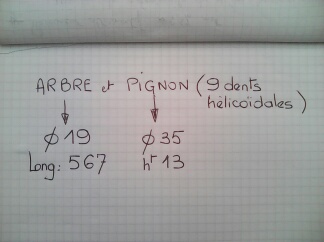 ARBRE et PIGNON (9 dents
hélicoïdales)
Ø 19 Ø 35
Long: 567 hr 13